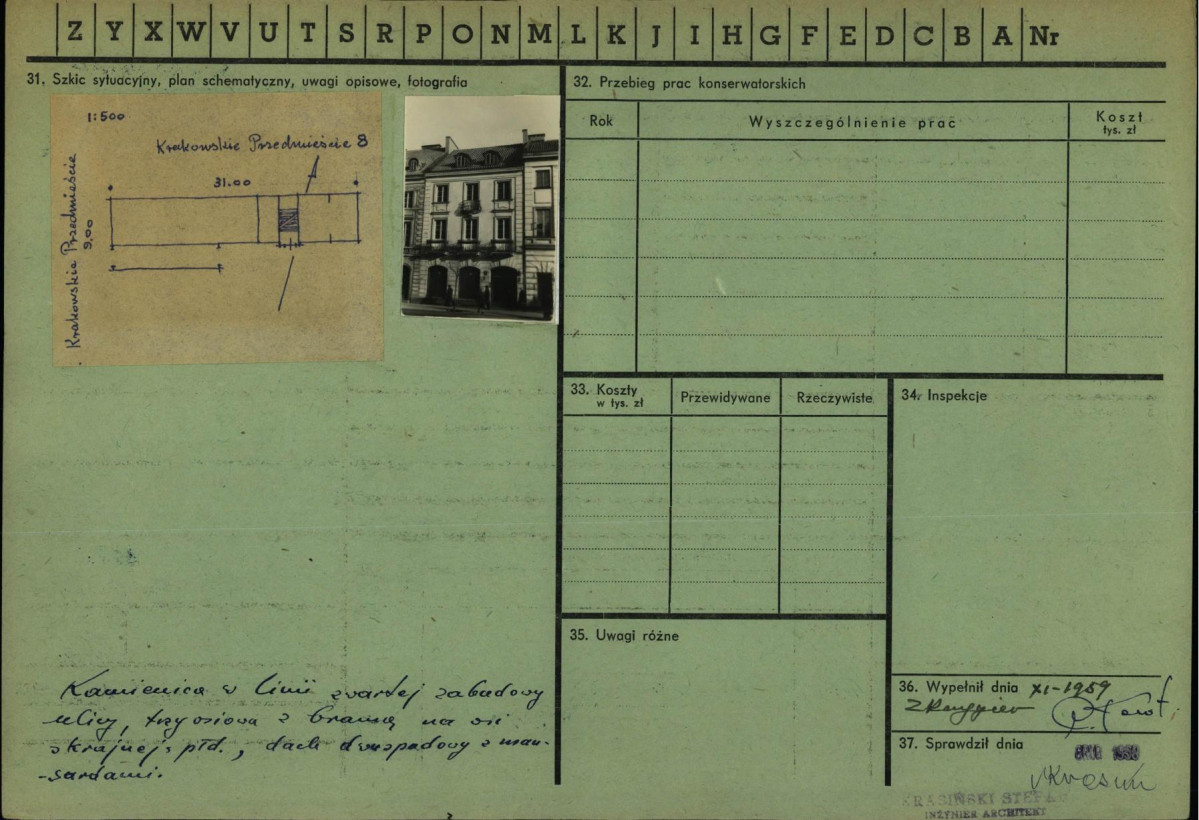 Z Y X W V U T S R P O N M L K J I H G F E D C B A Nr
31. Szkic sytuacyjny, plan schematyczny, uwagi opisowe, fotografia
1:500
Krakowskie Przedmieście 8
31.00
Krakowskie Przedmieście
9.00
Kamienica w linii zwartej zabudowy
ulicy, trzyosiowa z bramą na osi
skrajnej, płd., dach dwuspadowy z man-
-sardami.
32. Przebieg prac konserwatorskich
Rok
Wyszczególnienie prac
Koszt
tys. zł
33. Koszty
w tys. zł
Przewidywane
Rzeczywiste
34. Inspekcje
35. Uwagi różne
36. Wypełnił dnia XI-1959
37. Sprawdził dnia
KRASIŃSKI STEFAN
INŻYNIER ARCHITEKT